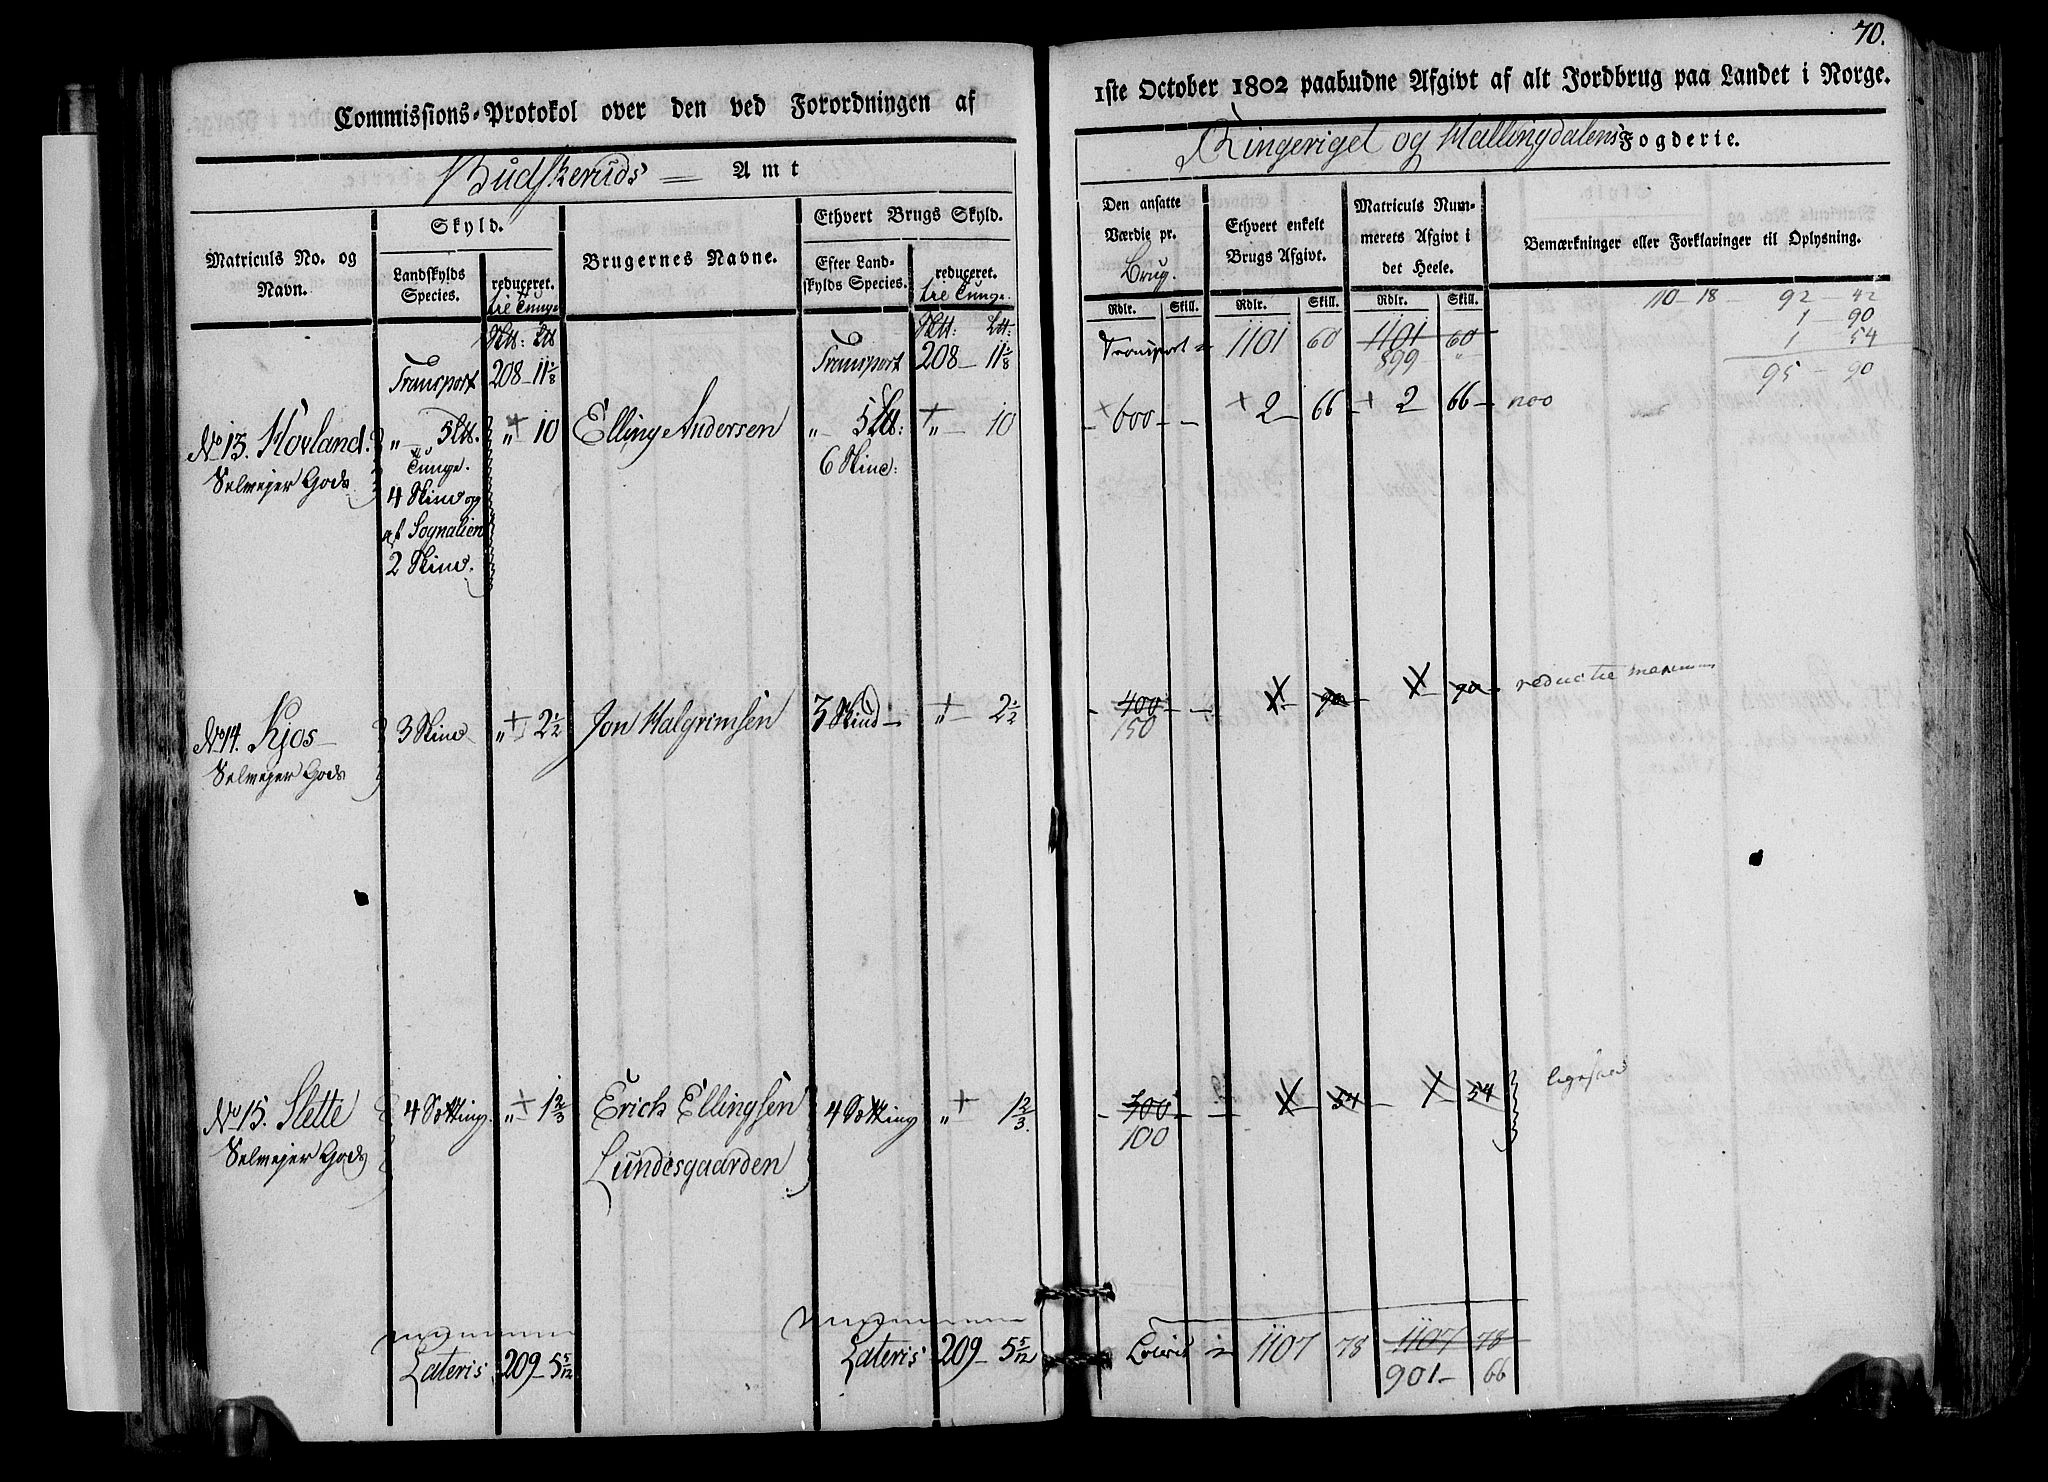 70.
Commissions-Protokol over den ved Forordningen af
1ste October 1802 paabudne Afgivt af alt Jordbrug paa Landet i Norge.
Budskeruds Amt
Ringeriget og Hallingdalens Fogderie.
Matriculs No. og Navn.
Skyld.
Landskylds Species.
reduceret.
til Tunge
Brugernes Navne.
Ethvert Brugs Skyld.
Efter Landskylds Species.
reduceret.
til Tunge.
Den ansatte Værdie pr.
Brug.
Rdlr. Skill.
Ethvert enkelt Brugs Afgivt.
Rdlr. Skill.
Matriculs Nummerets Afgivt i det Heele.
Rdlr. Skill.
Bemærkninger eller Forklaringer til Oplysning.
110 - 18 - 92 - 42
1 - 90
1 54
95 - 90
Transport 208 - 11 1/8
Transport 208 - 11 1/8
Transport 1101 60 1101 60
899 "
No 13. Hovland.
Selvejer Gods
" - 5 Lb.
Tunge.
4 Skind og
af Sognalien
2 Skind.
" + 10
Elling Andersen
" - 5 Lb:
6 Skind:
+ " - 10
- + 600 - - + 2 66 - + 2 66 -
No 14. Kjos
Selvejer Gods
3 Skind
" + 2 1/2
Jon Halgrimsen
3 Skind -
" + 2 1/2
- 400 - -
150
1 - 90 1 - 90 -
No 15. Slette
Selvejer Gods
4 Setting.
" + 1 2/3
Erich Ellingsen
Lundesgaarden
4 Setting
" + 1 2/3.
- 300 - -
100
1 - 54 - 1 - 54
Lateris 209 - 5 5/12
Lateris 209 - 5 5/12
Lateris 1107 78 1107 78
901 - 66